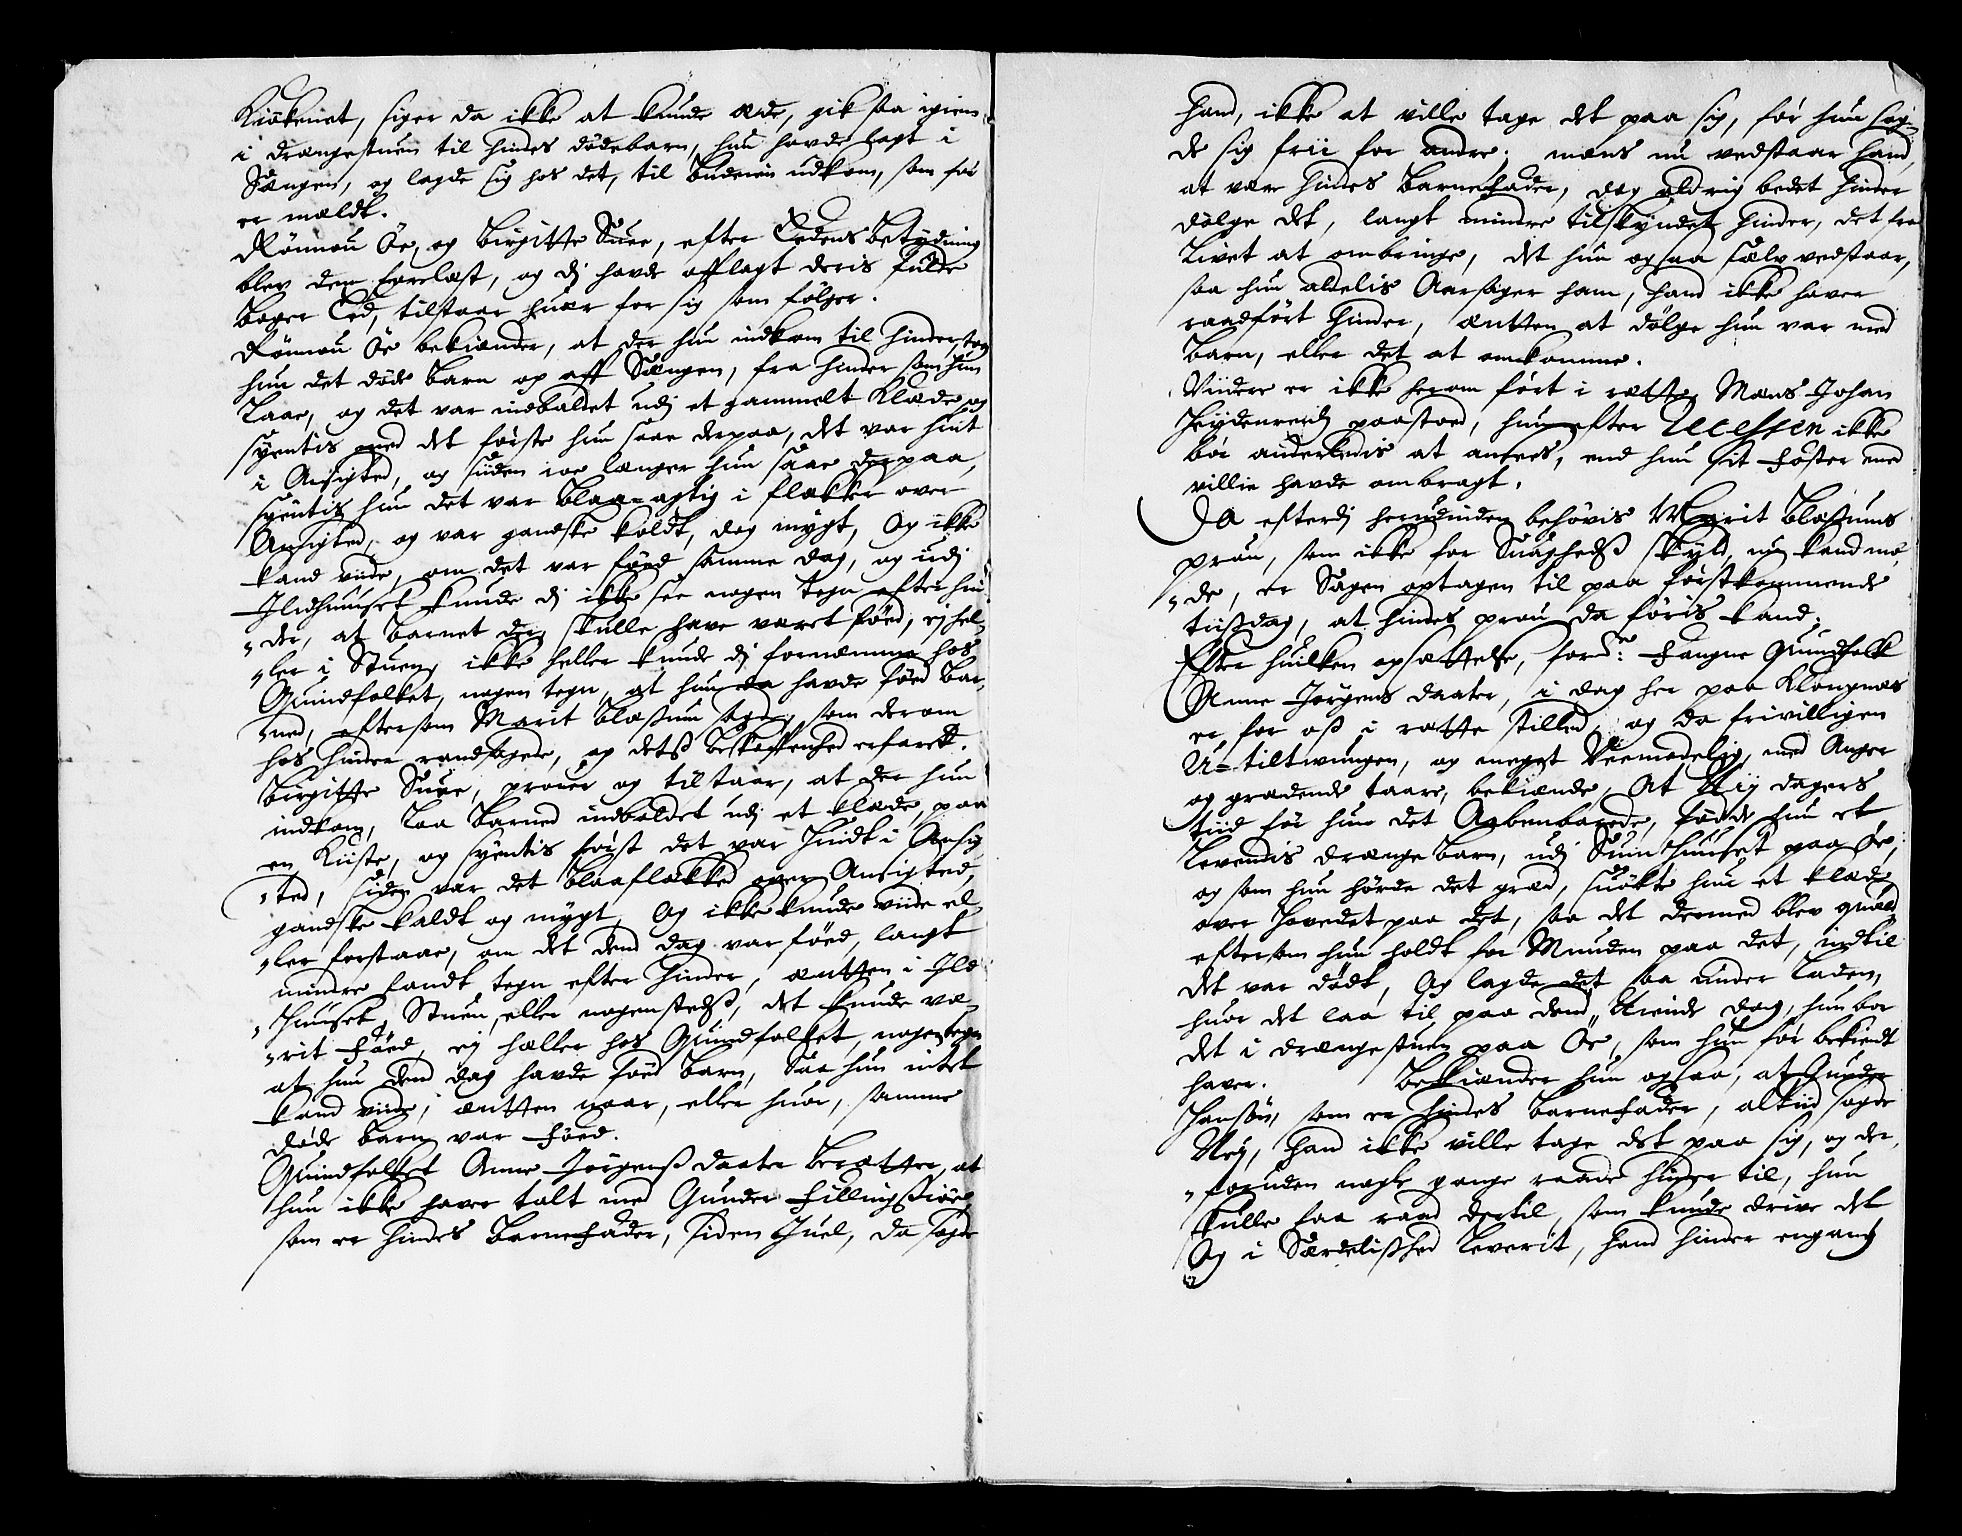 Kiökenet, siger da ikke at kunde æde, gik saa igien
i drængestuen til hindes dödebarn, hun hafde lagt i
Sængen, og lagde sig hos det, til Budeien udkom, som før
er meldt.
Rönnou Öe, og Birgitte Suee, efter Eedens betydning
blev dem forelæst, og dj hafde afflagt deris fulde
boger Eed, tilstaar huær for sig som følger.
Rönnou Öe bekiænder, at der hun indkom til hinder, tog
hun det döde barn op aff Sængen, fra hinder som hun
laae, og det var indbaldet udj et gammelt Klæde, og
syentis med det förste hun saae derpaa, det var huit
i Ansigted, og siiden ioe længer hun saae derpaa,
syentis hun det var blaa-agtig i flækker over
Ansigted, og var gandske koldt, dog mygt, Og ikke
kand viide, om det var föed samme dag, og udj
Ildhuuset kunde dj ikke see nogen tegn efter hin-
„der, at barnet der skulle have været föed, ej hel-
„ler i Stuen, ikke heller kunde dj fornæmme hos
Quindfolket, nogen tegn, at hun da hafde föed bar-
„ned, eftersom Marit Blessum sagde, som derom
hos hinder randsagede, og detss beskaffenhed erfaret.
Birgitte Suee, prover og tilstaar, at der hun
indkom, laa barned indboldet udj et klæde, paa
en Kiiste, og syentis först det var huidt i Ansig-
„ted, siden var det blaaflækked over Ansigted,
gandske koldt og mygt, Og ikke kunde viide el-
„ler forstaae, om det dend dag var föed, langt
mindre fandt tegn efter hinder, æntten i Ild-
„huuset, Stuen, eller nogenstedss, det kunde væ-
„rit föed, ej heller hos Quindfolket, nogen tegn
at hun dend dag hafde föed barn, Saa hun intet
kand viide, æntten naar, eller huor, samme
döde barn var föed.
Quindfolket Anne Jörgenss daater beretter, at
hun ikke haver talt med Gunder Fillingssiöe,
som er hindes barnefader, siden Juel, da sagde
hand, ikke at ville tage det paa sig, før hun sag-
de sig frii for andre; mens nu vedstaar hand,
at være hindes barnefader, dog aldrig bedet hinder
dölge det, langt mindre tilskyndet hinder, det fra
Livet at ombringe, det hun ogsaa sælv vedstaar,
saa hun aldelis Aarsager ham, hand ikke haver
raadfört hinder, æntten at dölge hun var med
barn, eller det at omkomme.
Viidere er ikke herom fört i rætte, Mens Johan
Heydenreich paastoed, hun efter Recessen ikke
bör anderledis at ansees, end hun sit foster med
villie hafde ombragt.
Da efterdj herudinden behövis Marit Blessums
prou, som ikke for Suaghedss skyld, nu kand mö-
„de, er Sagen optagen til paa förstkommende
tiissdag, at hindes prou da föris kand.
Efter huilken opsættelse, ford: Fangne Quindfolk
Anne Jörgens daater, i dag her paa Klongnæs
er for oss i rette stilled, og da frivilligen
U-tiltvungen, og meget Veemodelig, med Anger
og grædende taare, bekiænde, At dagers
tiid för hun det Aabenbarede, födde hun et
levendis drænge barn, udj Suinhuuset paa Öe,
og som hun hörde det græd, suöbte hun et klæde
over hovedet paa det, saa det dermed blev quæld,
eftersom hun holdt for Munden paa det, indtil
det var dödt, Og lagde det saa under laden,
huor det laa til paa dend dag, hun bar
det i drængestuen paa Öe, som hun för bekiendt
haver. Bekiænder hun ogsaa, at Gunder
Hanssön, som er hindes barnefader, altiid sagde
Nej, hand ikke ville tage det paa sig, og der-
„foruden nogle gange raade hinder til, hun
skulle faa raad dertil, som kunde drive det
Og i Særdelisshed leverit, hand hinder engang